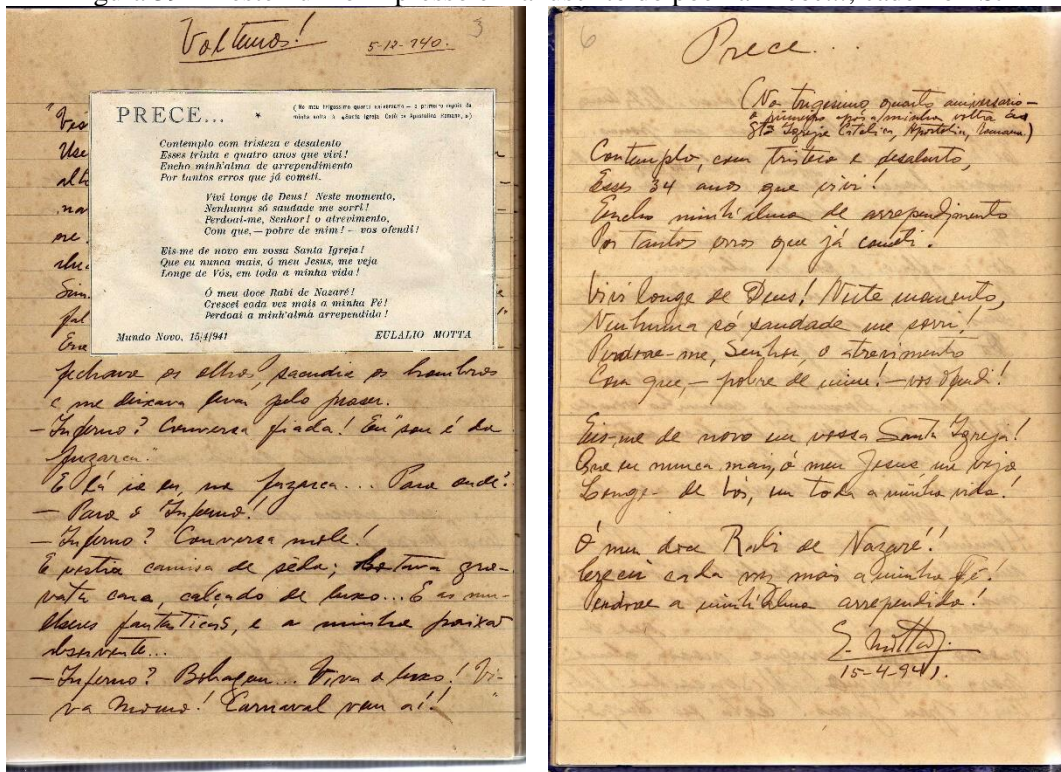 Voltemos!
5-12-940.
3
PRECE... *
(No meu trigessimo quarto aniversario — o primeiro depois da
minha volta à «Santa Igreja Católica Apostolica Romana,»)
Contemplo com tristeza e desalento
Esses trinta e quatro anos que vivi!
Encho minh'alma de arrependimento
Por tantos erros que já cometi.
Vivi longe de Deus! Neste momento,
Nenhuma só saudade me sorri!
Perdoai-me, Senhor! o atrevimento,
Com que, — pobre de mim! — vos ofendi!
Eis-me de novo em vossa Santa Igreja!
Que eu nunca mais, ó meu Jesus, me veja
Longe de Vós, em toda a minha vida!
Ó meu doce Rabí de Nazaré!
Crescei cada vez mais a minha Fé!
Perdoai a minh'alma arrependida!
Mundo Novo, 15/4/941
EULALIO MOTTA
fechava os olhos, sacudia os hombros
e me deixava levar pelo praser.
— Inferno? Conversa fiada! Eu sou é da
fuzarca."
E lá ia eu, na fuzarca... Para onde?
— Para o Inferno!
— Inferno? Conversa mole!
E vestia camisa de sêda; botava gra-
vata cara, calçado de luxo... E as mu-
lheres fantasticas, e a minha paixão
absorvente...
— Inferno? Bobagem... Viva o luxo! Vi-
va Momo! Carnaval vem aí!
6
Prece...
(No trigesimo quarto aniversario —
o primeiro após a minha volta á
Sta Igreja Catolica, Apostolica, Romana)
Contemplo, com tristeza e desalento,
Esses 34 anos que vivi!
Encho minh'alma de arrependimento
Por tantos erros que já cometi!
Vivi longe de Deus! Neste momento,
Nenhuma só saudade me sorri!
Perdoae-me, Senhor, o atrevimento
Com que, — pobre de mim! — vos ofendi!
Eis-me de novo em vossa Santa Igreja!
Que eu nunca mais, ó meu Jesus me veja
Longe de Vós, em toda a minha vida!
Ó meu doce Rabi de Nazaré!
Crecei cada vez mais a minha Fé!
Perdoae a minh'alma arrependida!
E. Motta
15-4-941.